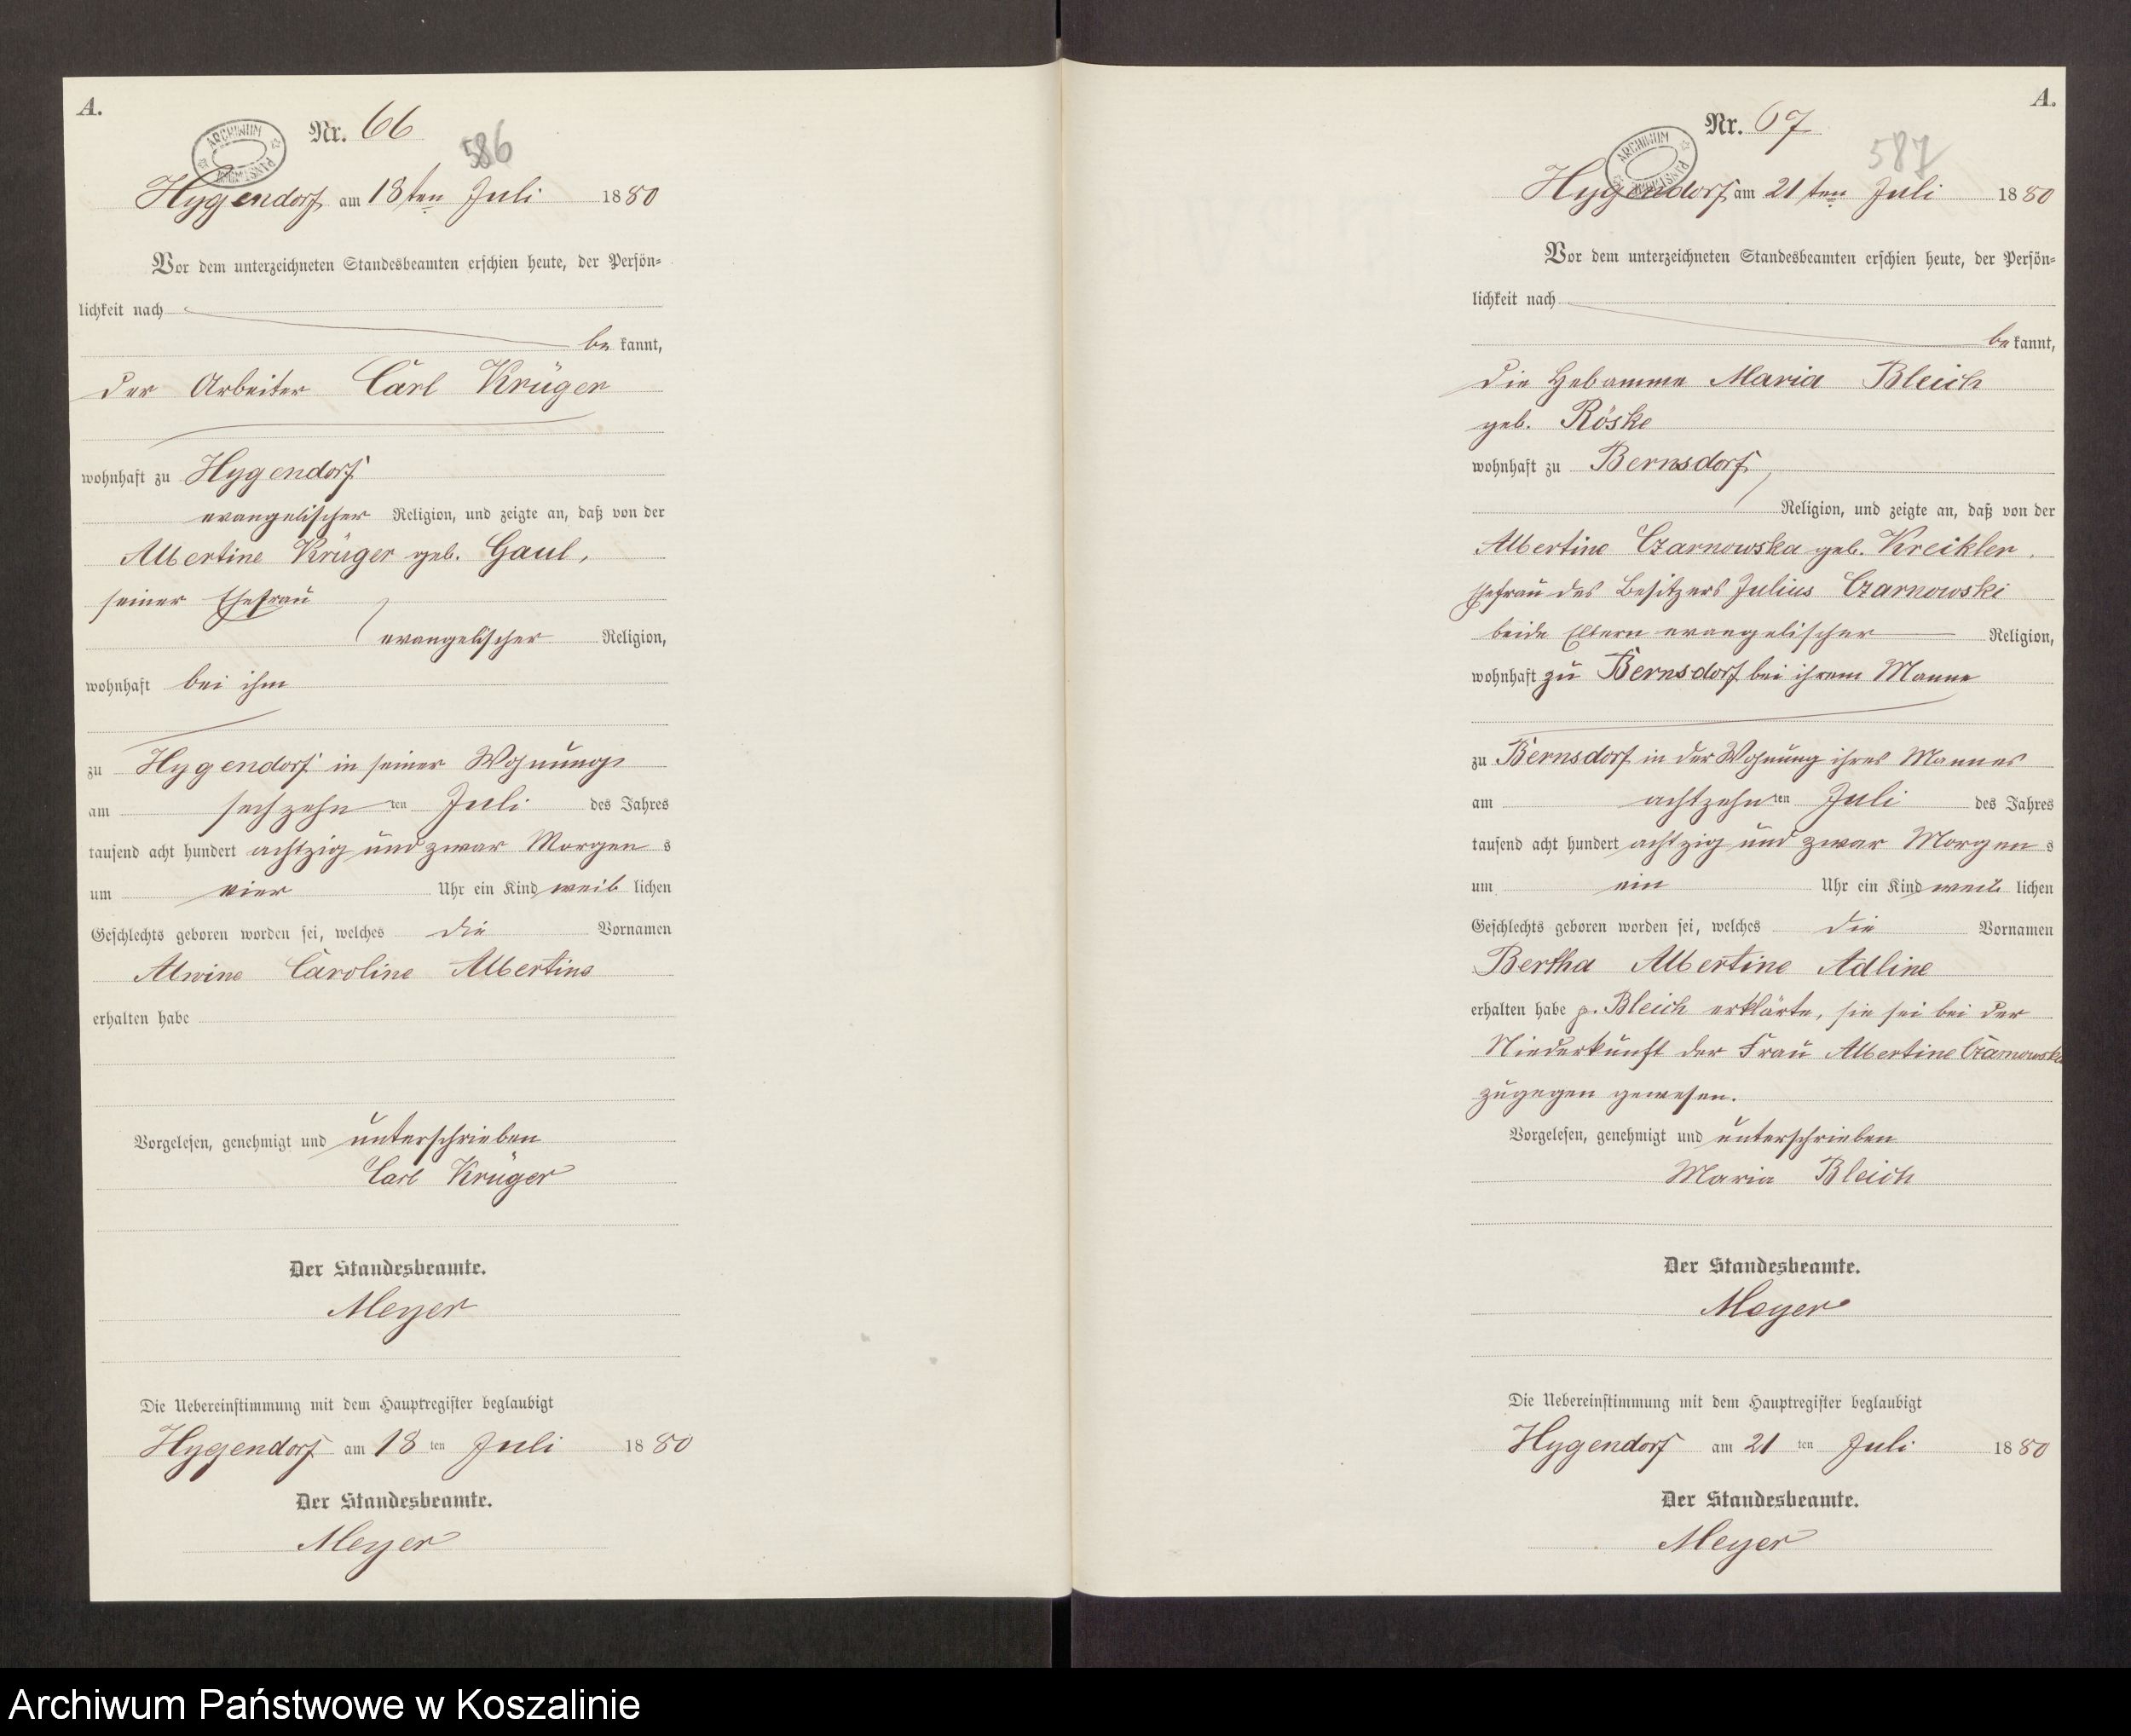 A.
Nr. 66
ARCHIWUM PAŃSTWOWE
586
Hygendorf am 18ten Juli 1880
Vor dem unterzeichneten Standesbeamten erschien heute, der Persön-
lichkeit nach
be kannt,
der Arbeiter Carl Krüger
wohnhaft zu Hygendorf
evangelischer Religion, und zeigte an, daß von der
Albertine Krüger geb. Gaul,
seiner Ehefrau
evangelischer Religion,
wohnhaft bei ihm
zu Hygendorf in seiner Wohnung
am sechzehn ten Juli des Jahres
tausend acht hundert achtzig und zwar Morgen s
um vier Uhr ein Kind weib lichen
Geschlechts geboren worden sei, welches die Vornamen
Alwine Caroline Albertine
erhalten habe
Vorgelesen, genehmigt und unterschrieben
Carl Krüger
Der Standesbeamte.
Meyer
Die Uebereinstimmung mit dem Hauptregister beglaubigt
Hygendorf am 18 ten Juli 1880
Der Standesbeamte.
Meyer
A.
Nr. 67
ARCHIWUM PAŃSTWOWE
587
Hygendorf am 21ten Juli 1880
Vor dem unterzeichneten Standesbeamten erschien heute, der Persön-
lichkeit nach
be kannt,
die Hebamme Maria Bleich
geb. Röske
wohnhaft zu Bernsdorf
Religion, und zeigte an, daß von der
Albertine Czarnowska geb. Kreikler.
Ehefrau des Besitzers Julius Czarnowski
beide Eltern evangelischer Religion,
wohnhaft zu Bernsdorf bei ihrem Manne
zu Bernsdorf in der Wohnung ihres Mannes
am achtzehn ten Juli des Jahres
tausend acht hundert achtzig und zwar Morgen s
um ein Uhr ein Kind weib lichen
Geschlechts geboren worden sei, welches die Vornamen
Bertha Albertine Adline
erhalten habe p. Bleich erklärte, sie sei bei der
Niederkunft der Frau Albertine Czarnowska
zugegen gewesen.
Vorgelesen, genehmigt und unterschrieben
Maria Bleich
Der Standesbeamte.
Meyer
Die Uebereinstimmung mit dem Hauptregister beglaubigt
Hygendorf am 21 ten Juli 1880
Der Standesbeamte.
Meyer
Archiwum Państwowe w Koszalinie